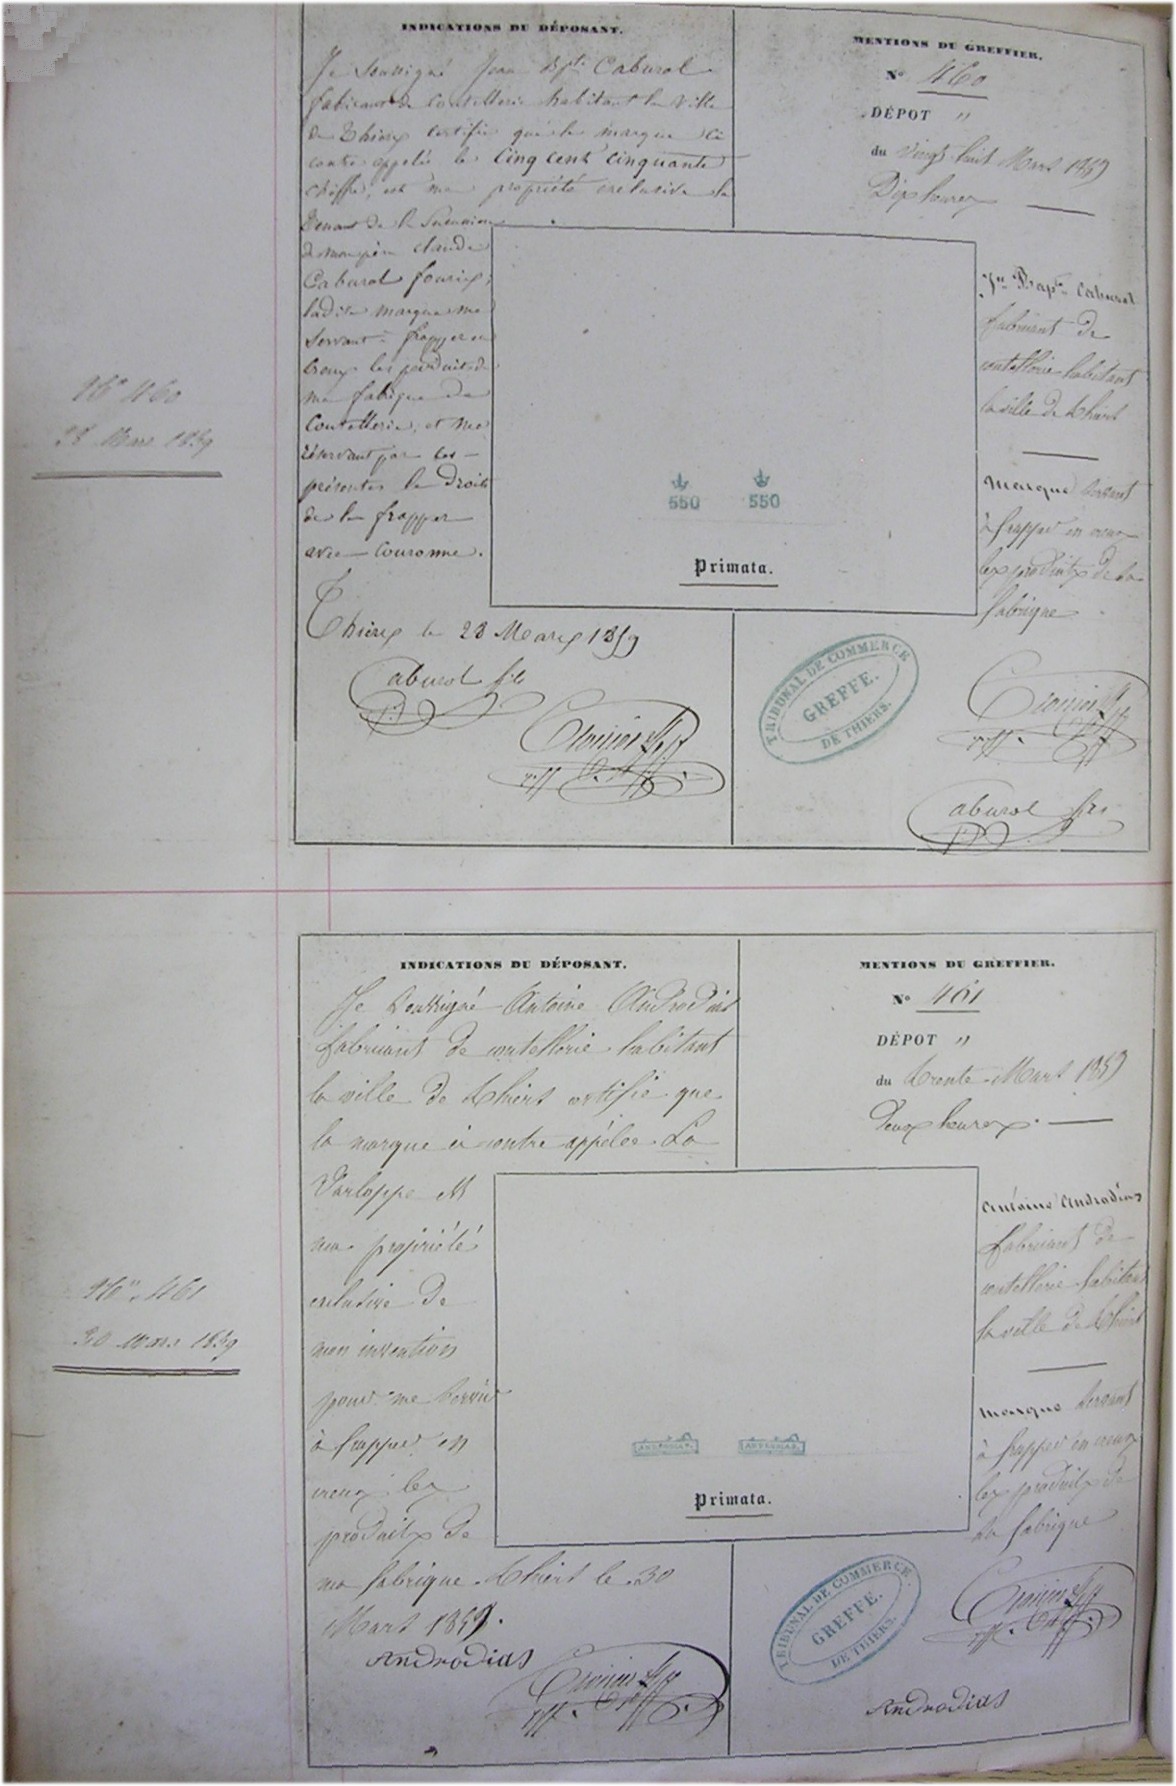 INDICATIONS DU DÉPOSANT.
Je Soussigné Jean Bpte Caburol
fabricant de Coutellerie habitant la Ville
de Thiers certifie que la marque ci
contre appelée le Cinq cent cinquante
chiffre, est ma propriété exclusive la
tenant de la Succession
de mon père Claude
Caburol
ladite marque me
Servant à frapper en
Creux les produits de
ma fabrique de
Coutellerie, et me
réservant par les
présentes le Droit
de la frapper
avec Couronne.
Thiers le 28 Mars 1859
Caburol fils
MENTIONS DU GREFFIER.
N° 460
DÉPOT "
du Vingt huit Mars 1859
Dix heures
Jn Bapte Caburol
fabricant de
coutellerie habitant
la ville de Thiers
Marque servant
à frapper en creux
les produits de sa
fabrique
550 550
Primata.
TRIBUNAL DE COMMERCE
GREFFE.
DE THIERS.
Caburol fils
No 460
28 Mars 1859
INDICATIONS DU DÉPOSANT.
Je Soussigné Antoine Androdias
fabricant de coutellerie habitant
la ville de Thiers certifie que
la marque ci contre appélée La
Varloppe est
ma propriété
exclusive de
mon invention
pour me servir
à frapper en
creux les
produits de
ma fabrique Thiers le 30
Mars 1859.
Androdias
MENTIONS DU GREFFIER.
N° 461
DÉPOT "
du trente Mars 1859
Deux heures.
Antoine Androdias
fabricant de
coutellerie habitant
la ville de Thiers
Marque servant
à frapper en creux
les produits de
sa fabrique
Primata.
TRIBUNAL DE COMMERCE
GREFFE.
DE THIERS.
Androdias
No 461
30 Mars 1859